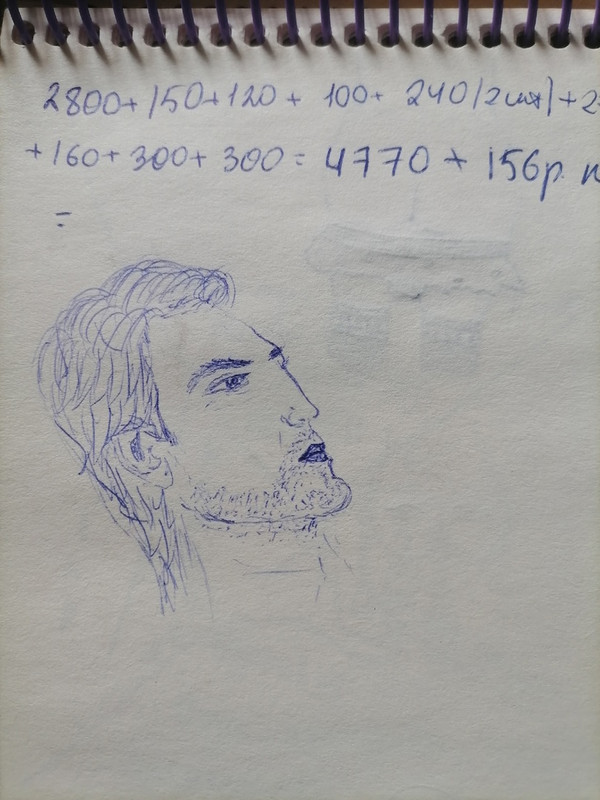 2800+150+120+ 100+ 240(2шт)+2
+160+300+300= 4770 + 156р.
=